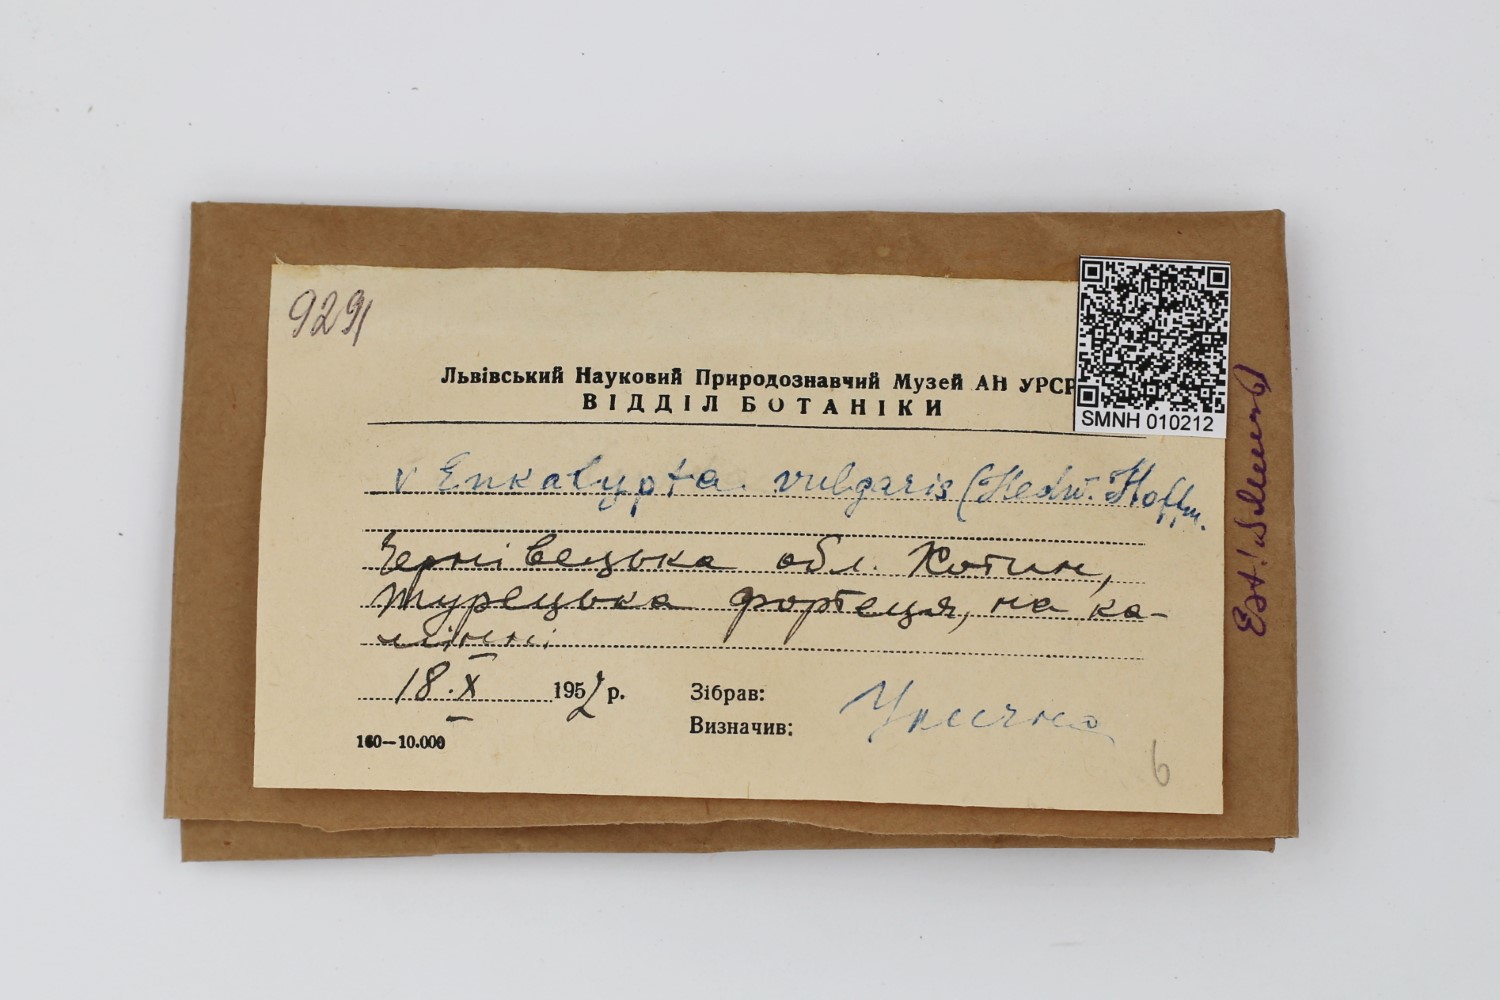 9291
Львівський Науковий Природознавчий Музей АН УРСР
ВІДДІЛ БОТАНІКИ
SMNH 010212
v Enkalypta vulgaris (Hedw. Hoffm.
Чернівецька обл. Хотин,
турецька фортеця, на ка-
мінні
18.X 1957 р.
Зібрав:
Визначив:
160—10.000
6
Est!